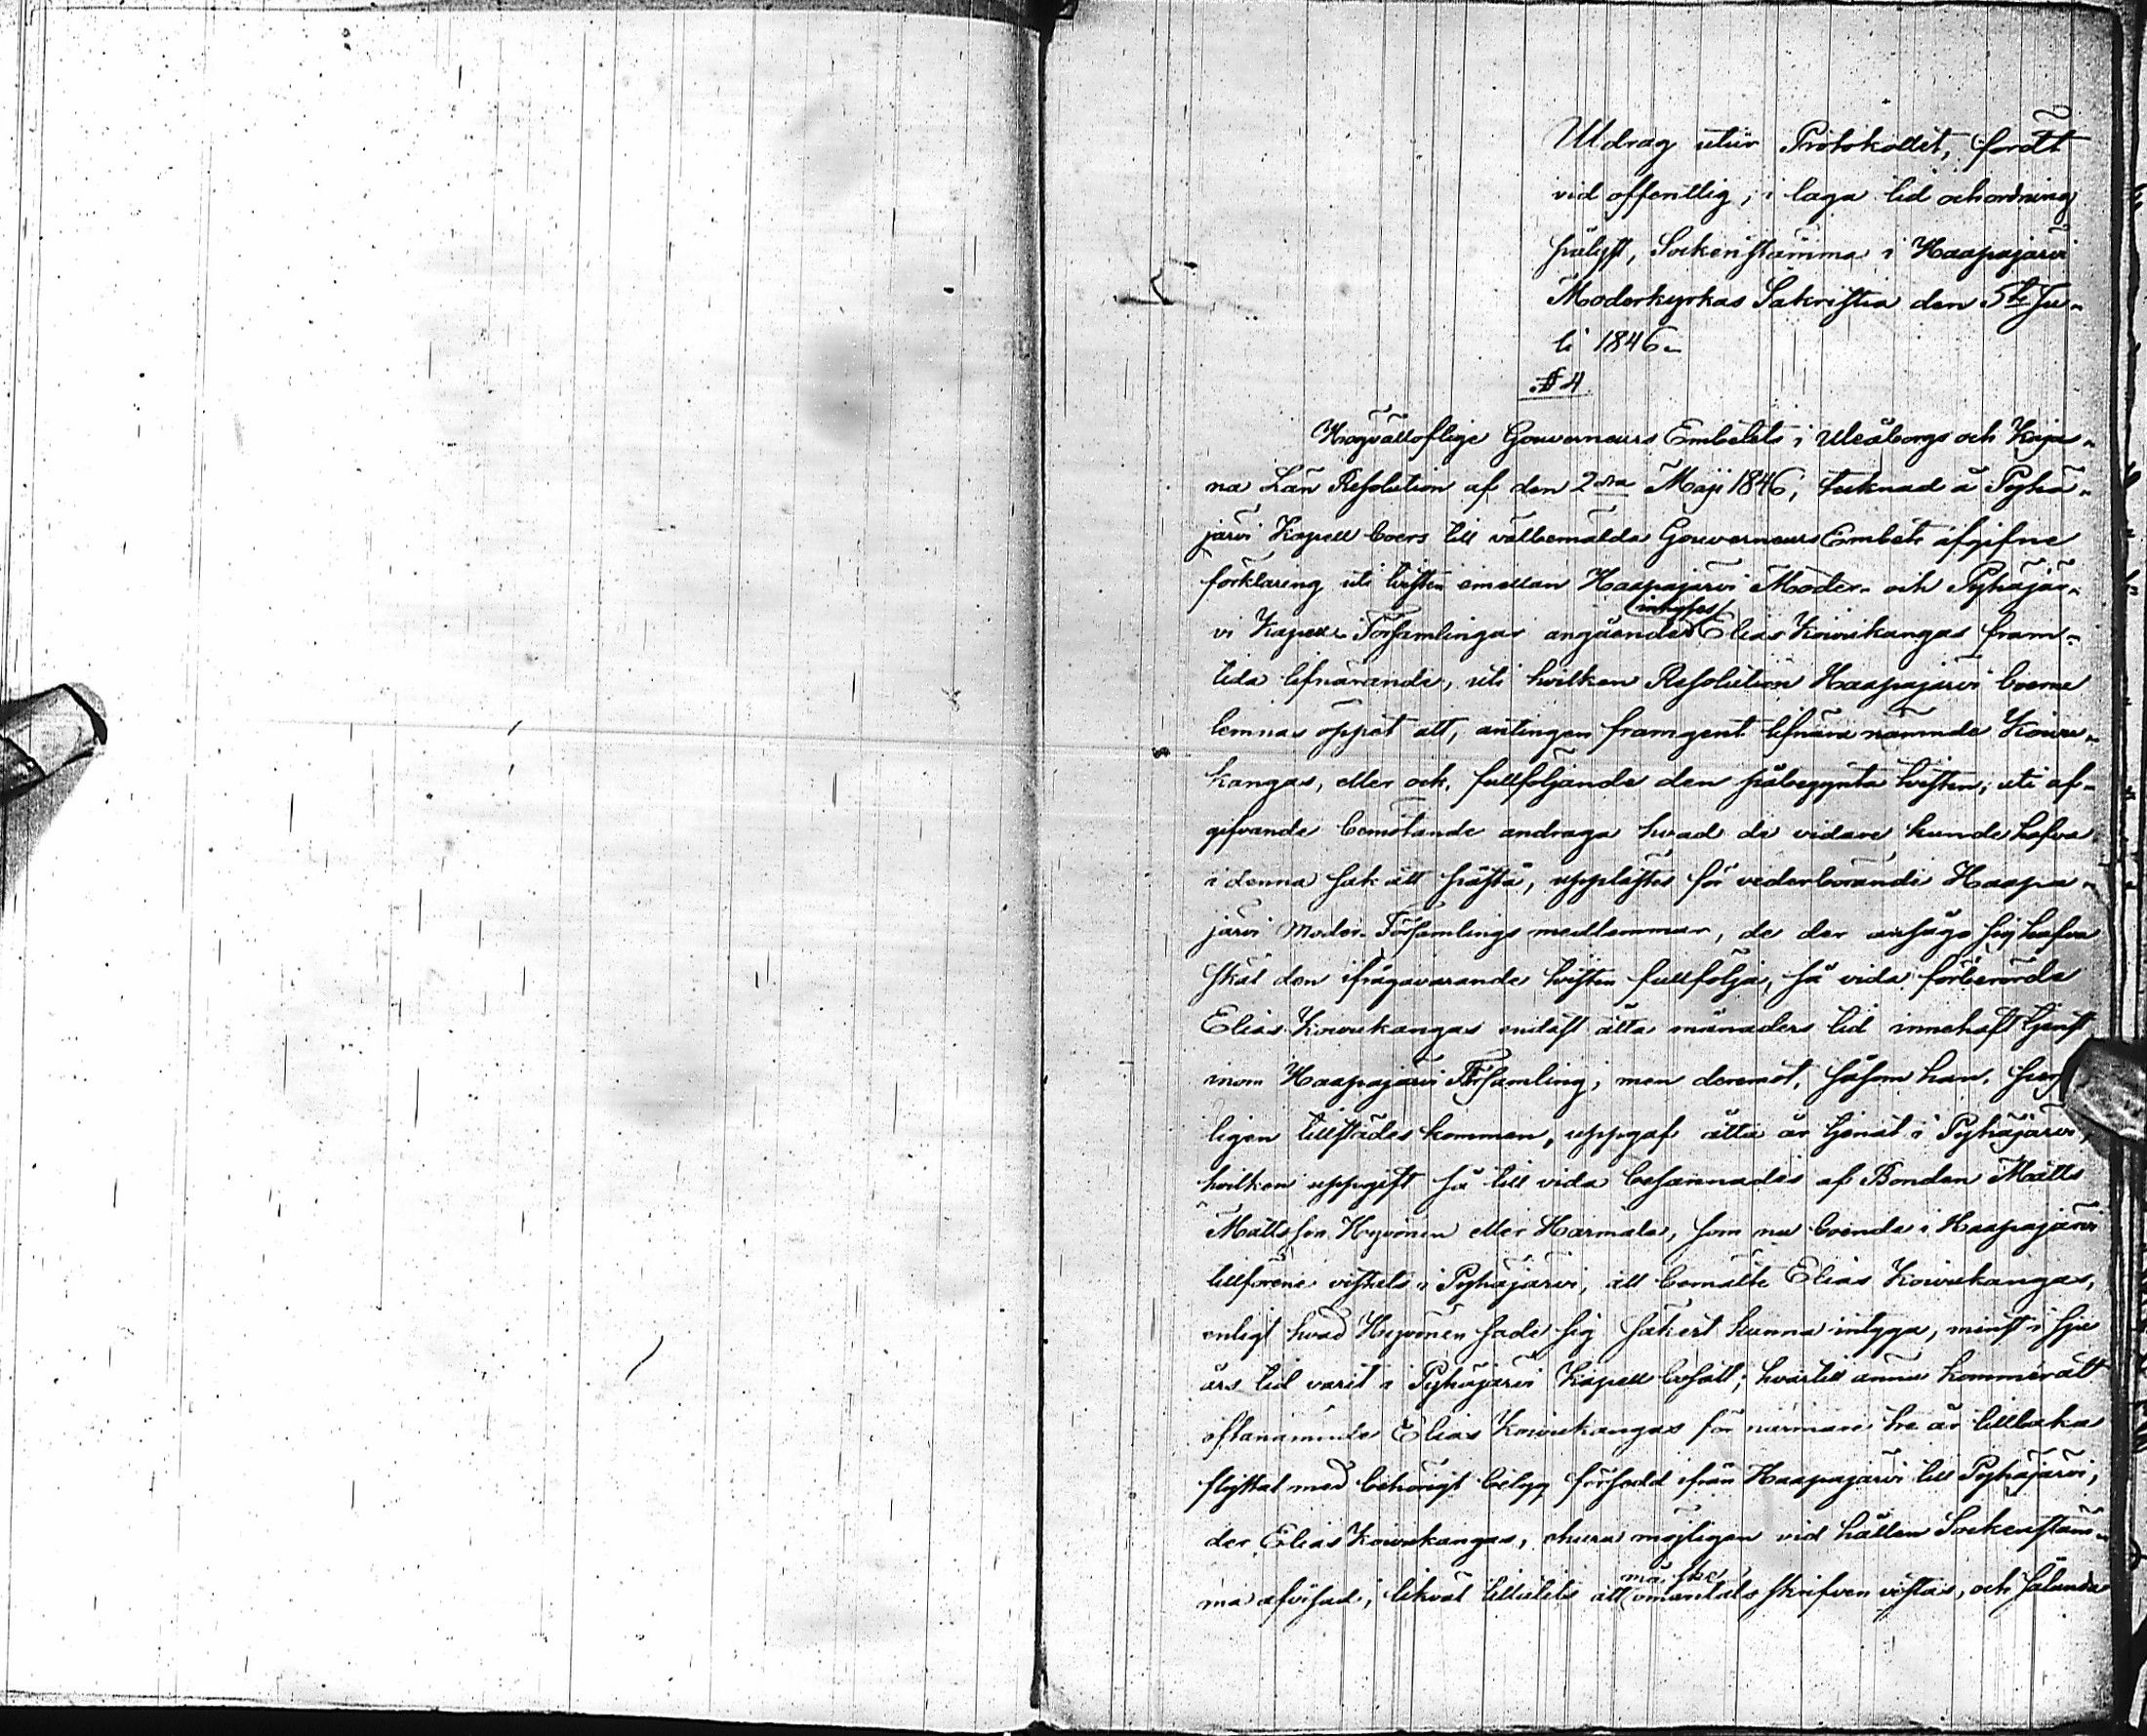 Utdrag utur Protokollet, fördt
vid offentlig, i laga tid och ordning
pålyst, Sockenstämma i Haapajärvi
Moderkyrkas Sakristia den 5te Ju-
li 1846.
§ 4
Högvälloflige Gouverneurs Embetets i Uleåborgs och Kaja-
na Län Resolution af den 2dra Maji 1846, tecknad å Pyhä-
järvi Kapell boers till välbemälda Gouverneurs Embete afgifne
förklaring uti tvisten emellan Haapajärvi Moder- och Pyhäjär-
vi Kapell Församlingar angående inhyses Elias Koivukangas fram-
tida lifnärande, uti hvilken Resolution Haapajärvi boerne
lemnas öppet att, antingen framgent lifnära nämnde Koivu-
kangas, eller och, fullföljande den påbegynta tvisten, uti af-
gifvande bemötande andraga hvad de vidare kunde hafva
i denna sak att påstå, upplästes för vederbörande Haapa-
järvi Moder-Församlings medlemmar, de der ansågo sig hafva
skäl den ifrågavarande tvisten fullfölja, så vida förberörde
Elias Koivukangas endast åtta månaders tid innehaft tjenst
inom Haapajärvi Församling, men deremot, såsom han,
ligen tillstädes kommen, uppgaf åtta år tjenat i Pyhäjärvi,
hvilken uppgift så till vida besannades af Bonden Matts
Mattsson Hyvönen eller Harmala, som nu boende i Haapajärvi
tillförene vistats i Pyhäjärvi, att bemälte Elias Koivukangas,
enligt hvad Hyvönen sade sig säkert kunna intyga, minst i sju
års tid varit i Pyhäjärvi Kapell bosatt; hvartill ännu kommer att
oftanämnde Elias Koivukangas för närmare tre år tillbaka
flyttat med behörigt betyg försedd ifrån Haapajärvi till Pyhäjärvi,
der Elias Koivukangas, ehuru möjligen vid hållen Sockenstäm-
ma afvisad, likväl tillåtits att må ske omantals skrifven vistas, och sålunda